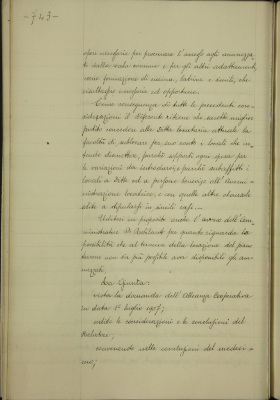 - 743 -
opere necessarie per procurare l'accesso agli ammezza-
ti dalla scala comune e per gli altri adattamenti,
come formazione di cucina, latrina e simili, che
risultassero necessari ed opportuni.
Come conseguenza di tutte le precedenti con-
siderazioni il riferente ritiene che sarebbe miglior
partito concedere alla Ditta locataria attuale la
facoltà di subaffittare per suo conto i locali che in-
tende dismettere, purchè sopporti ogni spesa per
le variazioni da introdursi, e purchè subaffitti i
locali a Ditte od a persone benevise all'Ammi-
nistrazione locatrice, e con quelle altre clausole
solite a stipularsi in simili casi.
Udito in proposito anche l'avviso dell'Am-
ministratore Architetto per quanto riguarda la
possibilità che al termine della locazione del pian
terreno non sia più possibile aver disponibili gli am-
mezzati,
La Giunta:
vista la domanda dell'Alleanza Cooperativa
in data 1° luglio 1907;
udite le considerazioni e le conclusioni del
Relatore;
convenendo nelle conclusioni del medesi-
mo;